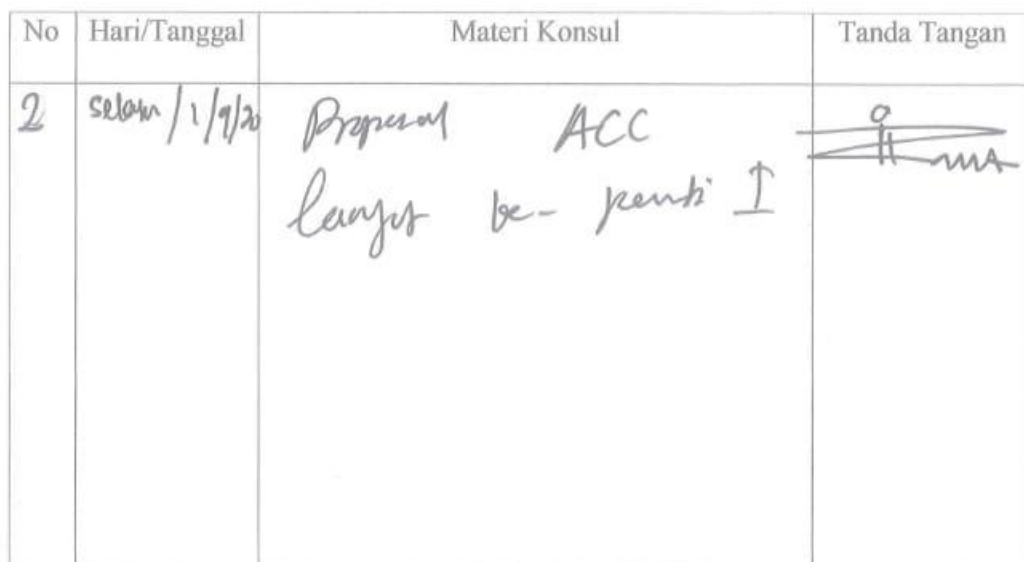 No Hari/Tanggal Materi Konsul Tanda Tangan
2 selasa/1/9/20 Proposal ACC
lanjut ke- I